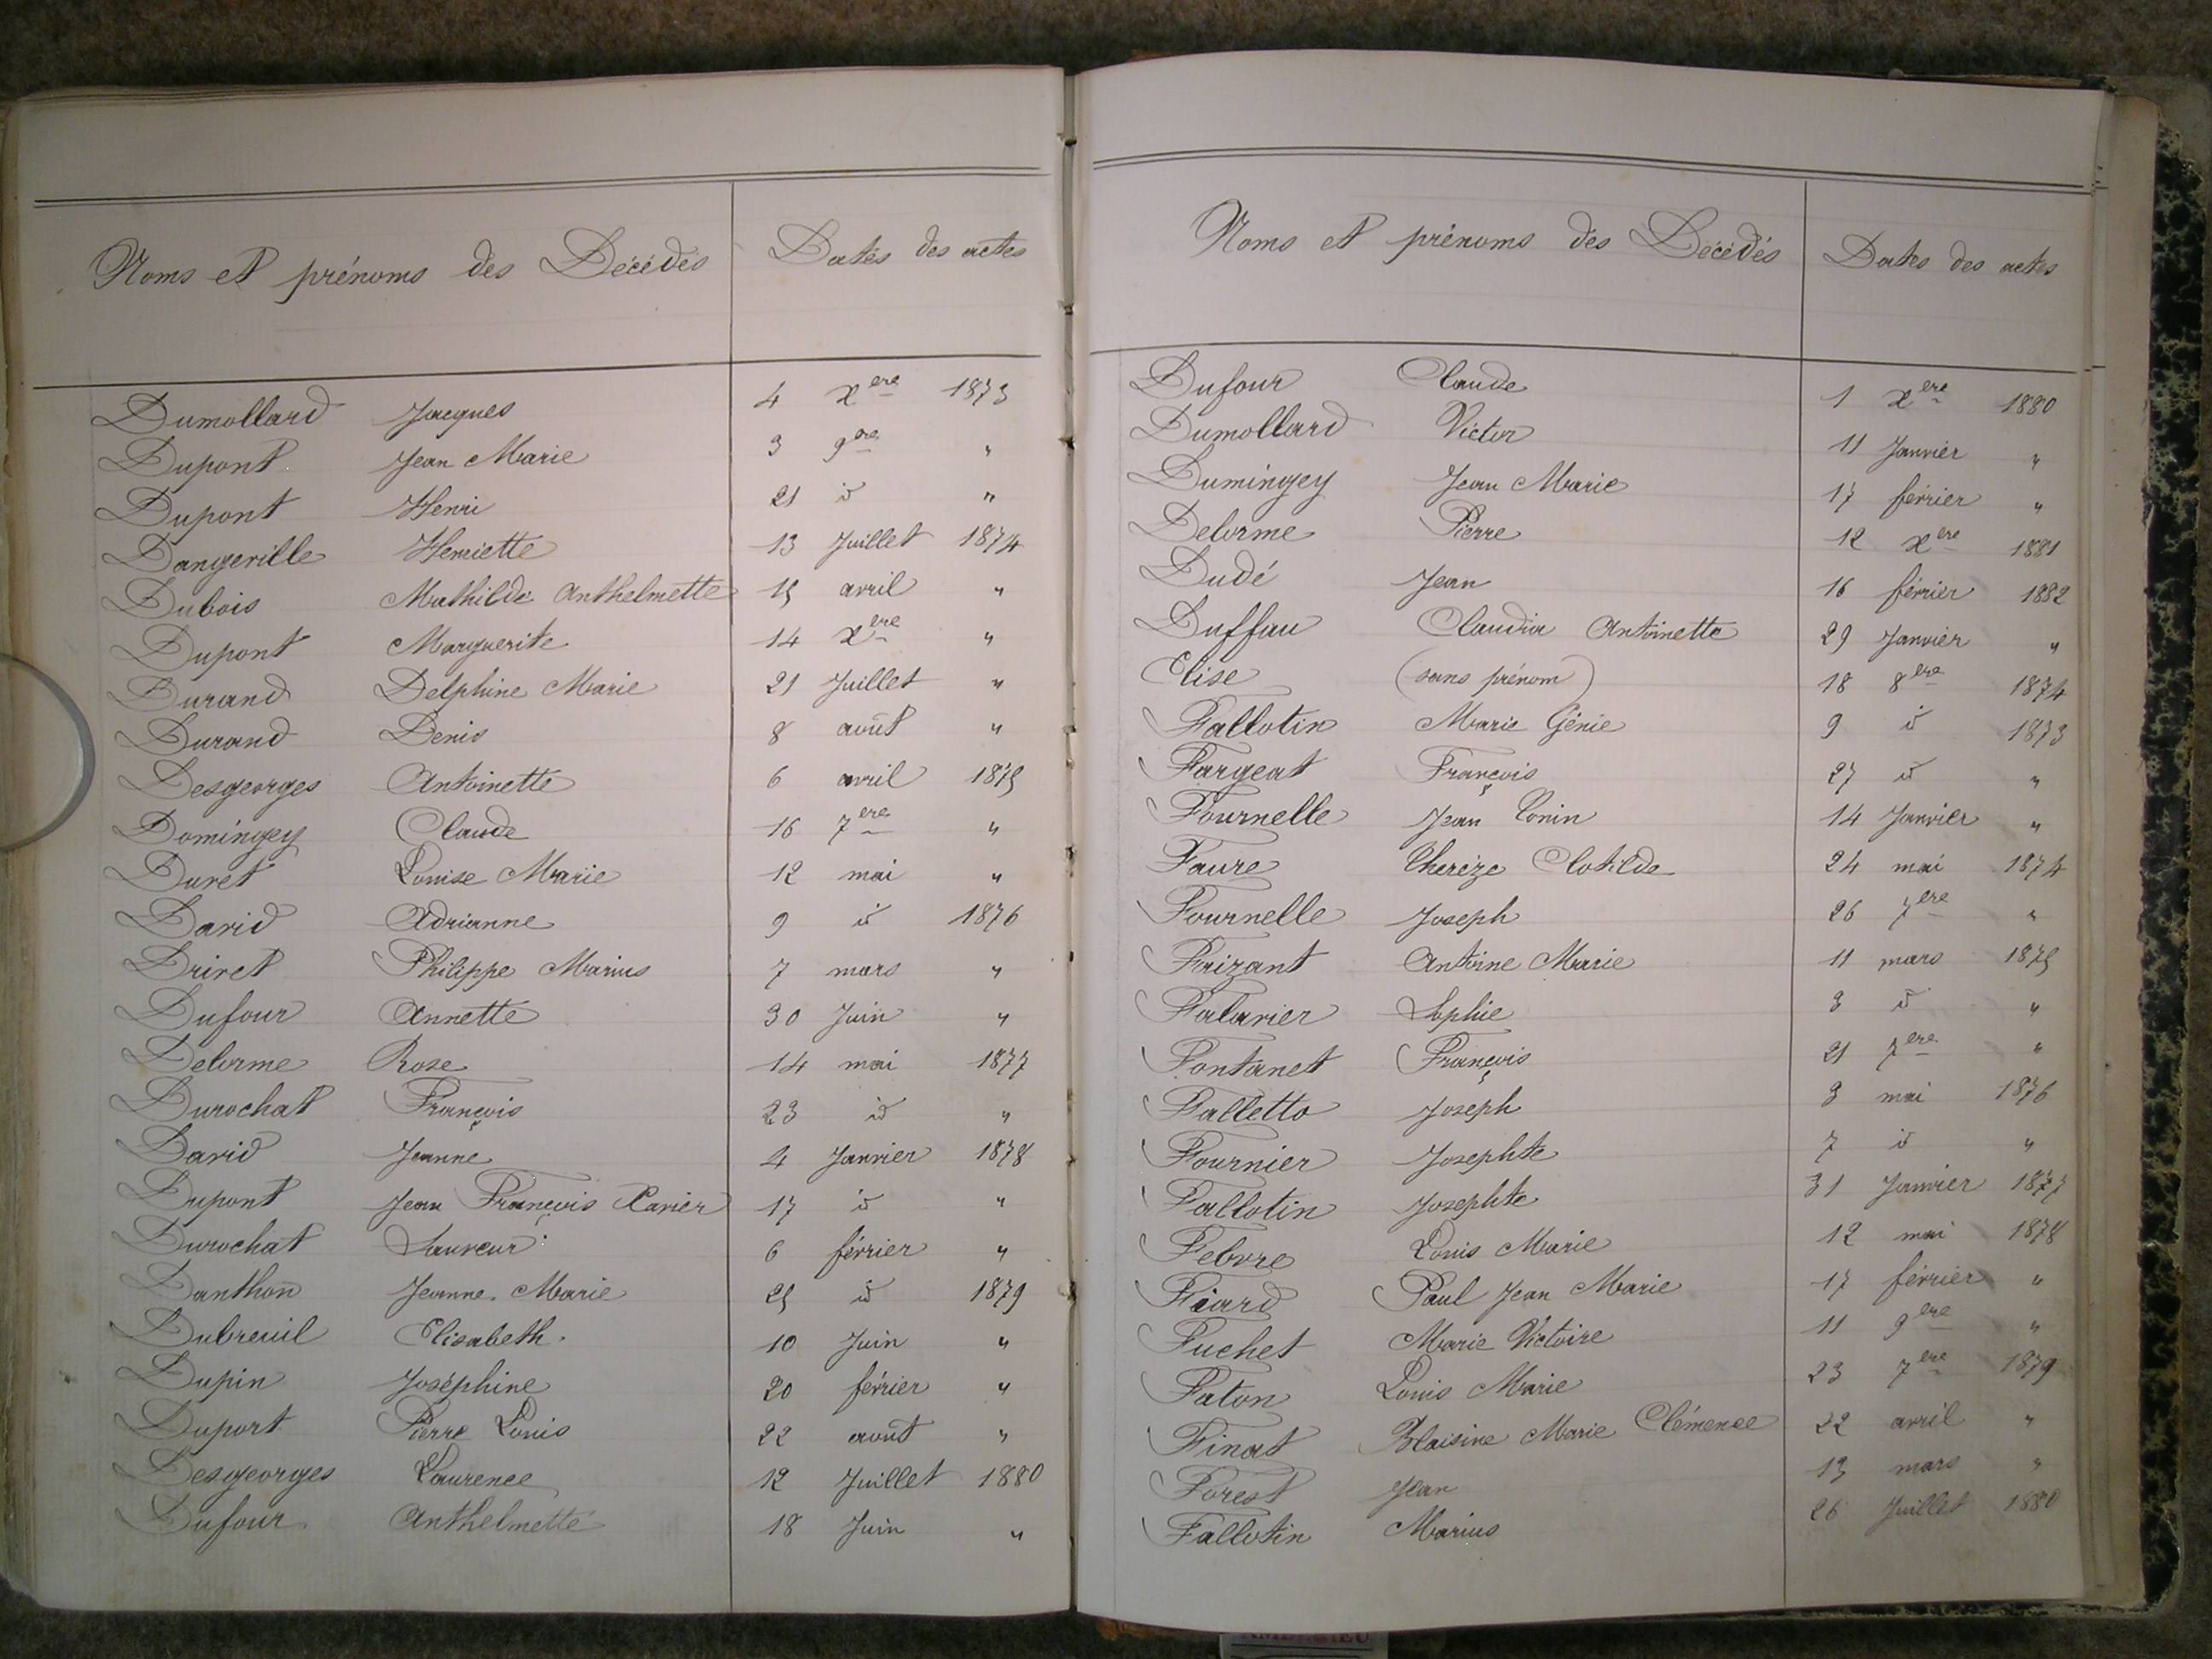 Noms et prénoms des Décédés Dates des actes
Dumollard Jacques 4 Xere 1873
Dupont Jean Marie 3 9ere "
Dupont Henri 21 id "
Dangeville Henriette 13 Juillet 1874
Dubois Mathilde Anthelmette 15 avril "
Dupont Marguerite 14 Xere "
Durand Delphine Marie 21 Juillet "
Durand Denis 8 août "
Desgeorges Antoinette 6 avril 1875
Domingey Claude 16 7ere "
Duret Louise Marie 12 mai "
David Adrianne 9 id 1876
Drivet Philippe Marius 7 mars "
Dufour Annette 30 Juin "
Delorme Rose 14 mai 1877
Durochat François 23 id "
David Jeanne 4 Janvier 1878
Dupont Jean François Xavier 17 id "
Durochat Sauveur 6 février "
Danthon Jeanne Marie 25 id 1879
Dubreuil Elisabeth. 10 Juin "
Dupin Joséphine 20 février "
Duport Pierre Louis 22 août "
Desgeorges Laurence 12 Juillet 1880
Dufour Anthelmette 18 Juin "
Noms et prénoms des Décédés Dates des actes
Dufour Claude 1 Xere 1880
Dumollard Victor 11 Janvier "
Dumingey Jean Marie 17 février "
Delorme Pierre 12 Xere 1881
Dudé Jean 16 février 1882
Duffau Claudia Antoinette 29 Janvier "
Elise (sans prénom) 18 8ere 1874
Fallotin Marie Génie 9 id 1873
Fargeat François 27 id "
Fournelle Jean Tonin 14 Janvier "
Faure Therèze Clotilde 24 mai 1874
Fournelle Joseph 26 7ere "
Faizant Antoine Marie 11 mars 1875
Falavier Sophie 3 id "
Fontanet François 21 7ere "
Falletto Joseph 3 mai 1876
Fournier Josephte 7 id "
Fallotin Josephte 31 Janvier 1877
Febvre Louis Marie 12 mai 1878
Fiard Paul Jean Marie 17 février "
Fuchet Marie Victoire 11 9ere "
Faton Louis Marie 23 7ere 1879
Finat Blaisine Marie Clémence 22 avril "
Forest Jean 13 mars "
Fallotin Marius 26 Juillet 1880